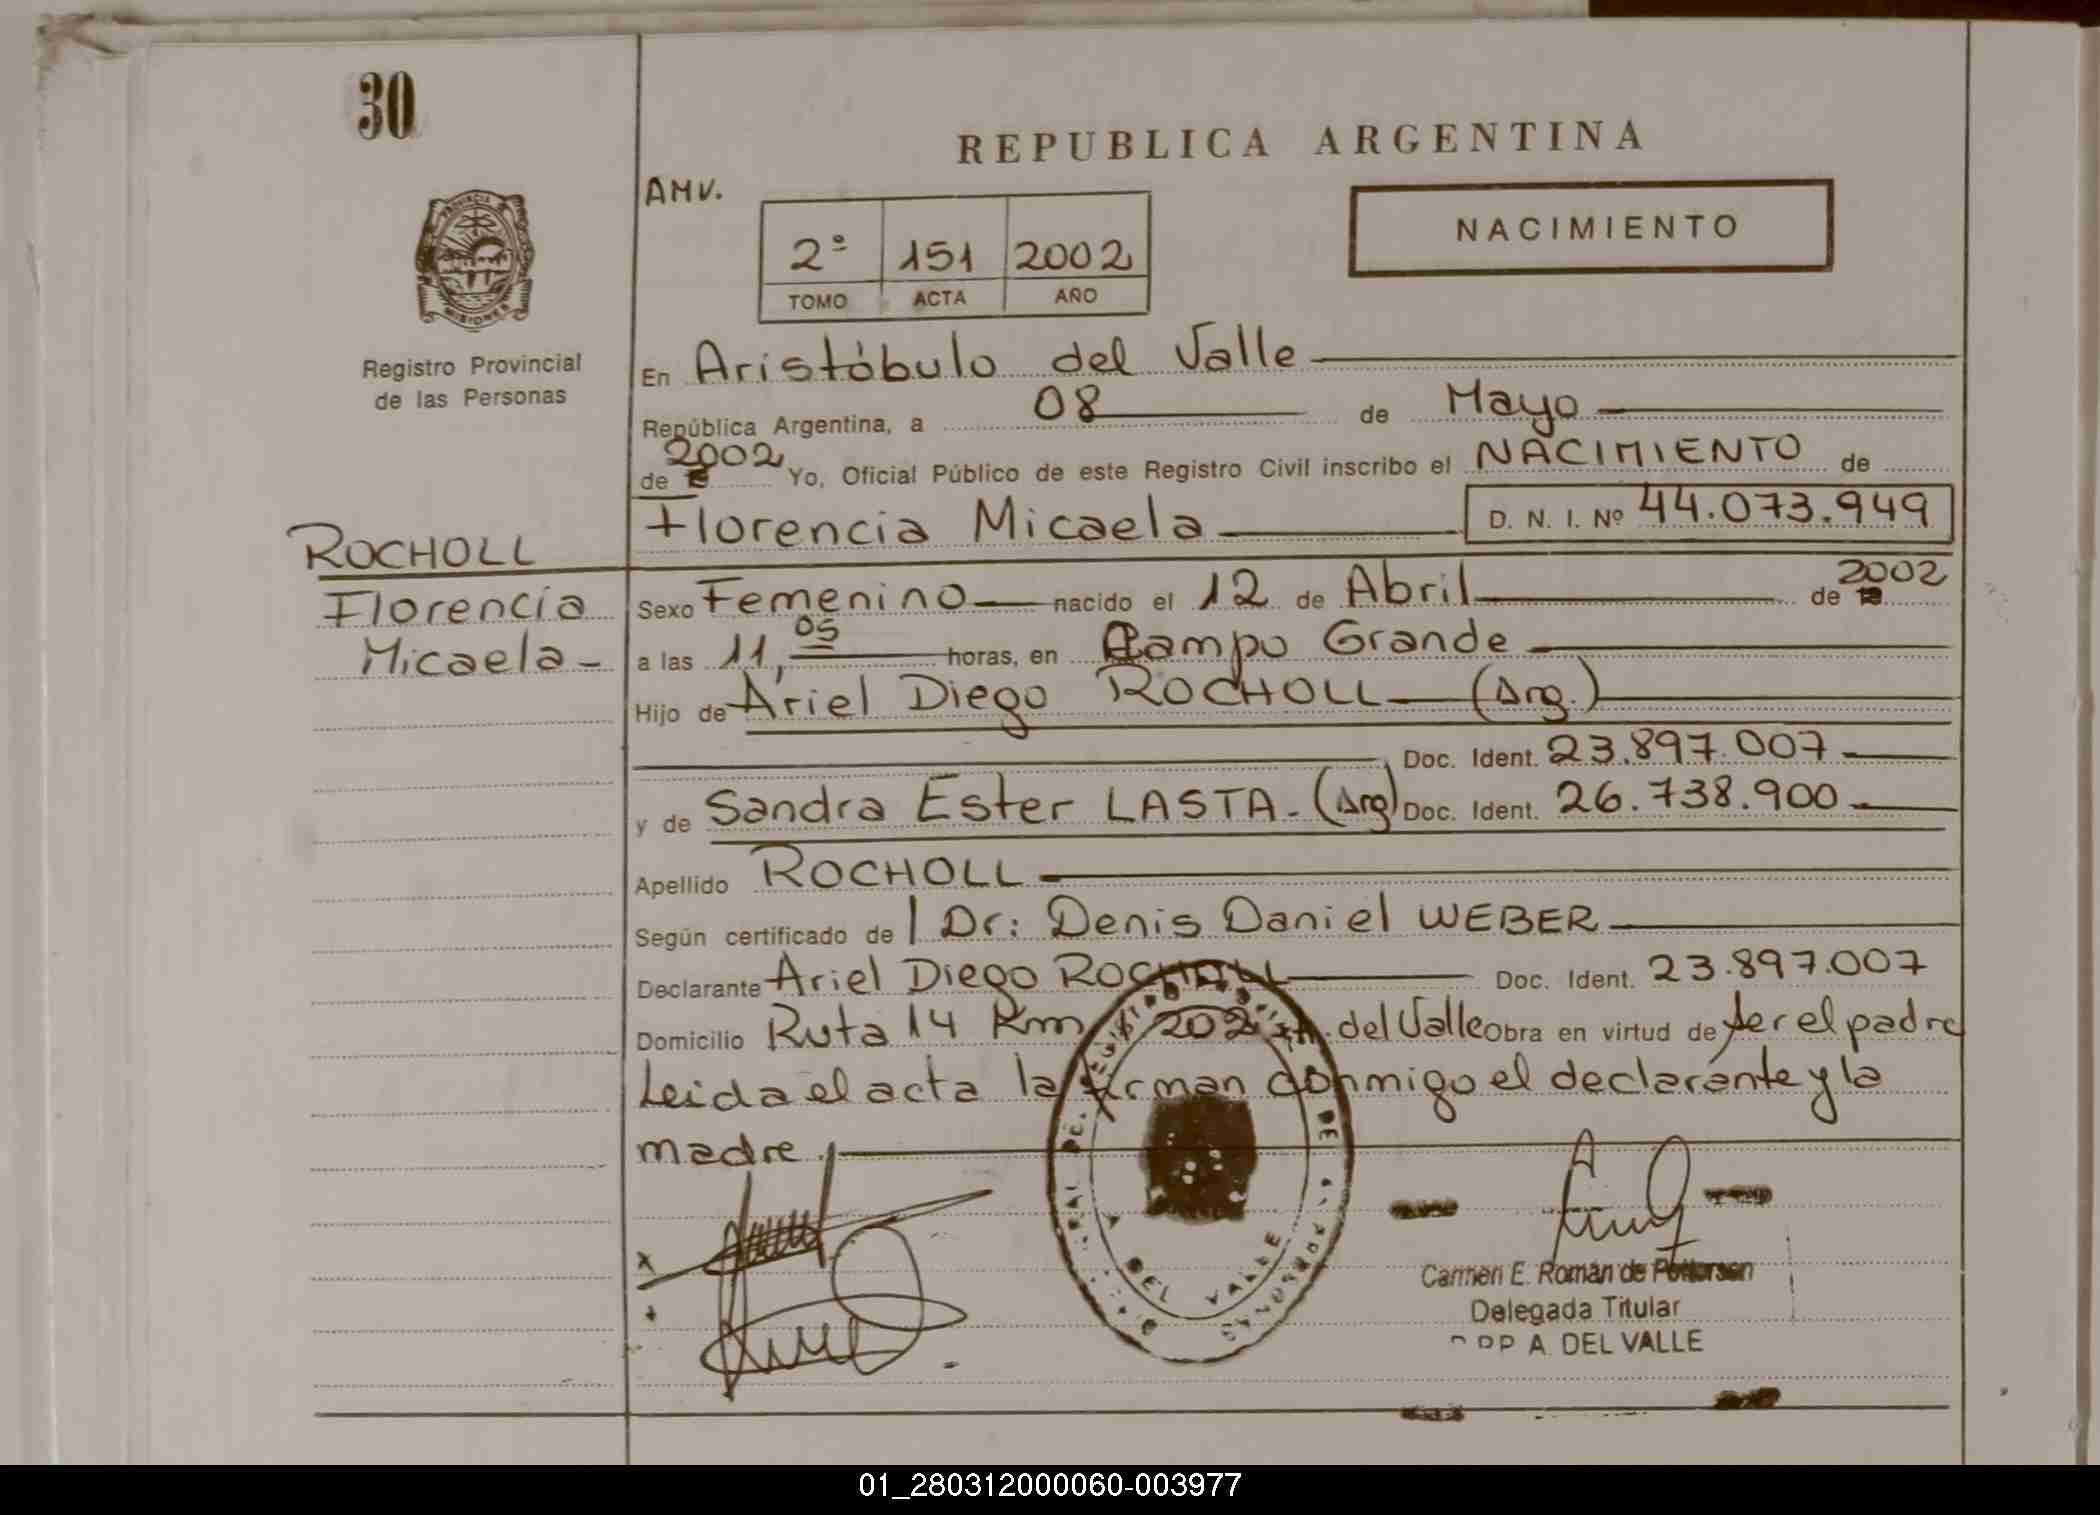 30
REPUBLICA ARGENTINA
AMV.
NACIMIENTO
2º 151 2002
TOMO ACTA AÑO
PROVINCIA
MISIONES
Registro Provincial
de las Personas
En Aristóbulo del Valle
República Argentina, a 08 de Mayo
de 2002 Yo, Oficial Público de este Registro Civil inscribo el NACIMIENTO de
Florencia Micaela D. N. I. Nº 44.073.949
ROCHOLL
Florencia
Micaela-
Sexo Femenino nacido el 12 de Abril de 2002
a las 11,05 horas, en Campo Grande
Hijo de Ariel Diego ROCHOLL (Arg.)
Doc. Ident. 23.897.007
y de Sandra Ester LASTA. (Arg) Doc. Ident. 26.738.900
Apellido ROCHOLL
Según certificado de l Dr: Denis Daniel WEBER
Declarante Ariel Diego ROCHOLL Doc. Ident. 23.897.007
Domicilio Ruta 14 Km 202 A. del Valle Obra en virtud de ser el padre
Leida el acta la firman conmigo el declarante y la
madre.
DE
DEL VALLE
Carmen E. Román de
Delegada Titular
A. DEL VALLE
01_280312000060-003977